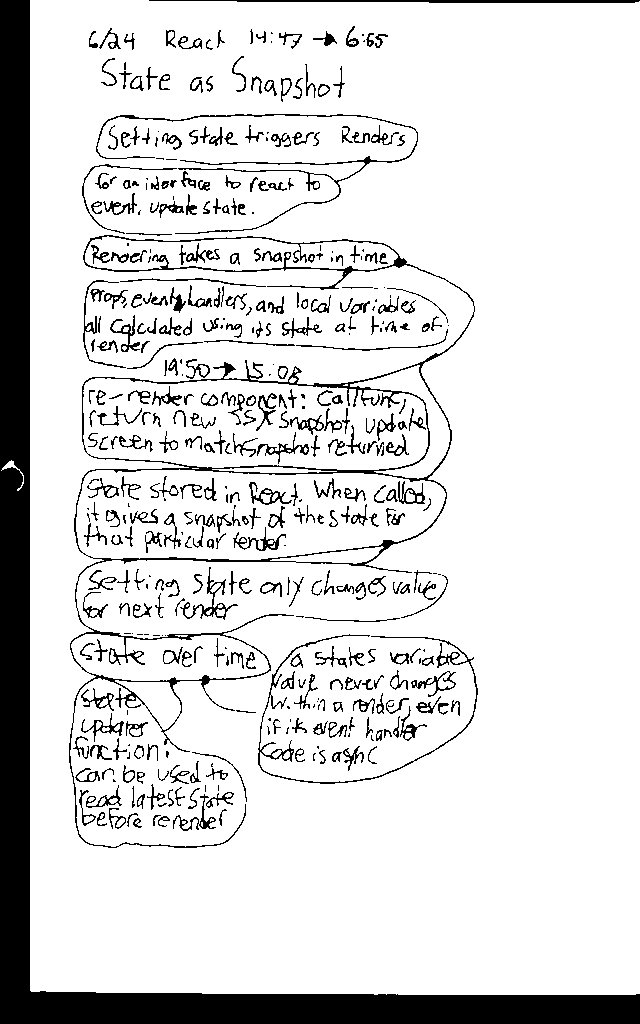 6/24 React 14:47 → 6:55
State as Snapshot
Setting state triggers Renders
for an interface to react to
event, update state.
Rendering takes a snapshot in time
props, event handlers, and local variables
all calculated using its state at time of
render
14:50 → 15:08
re-render component: Call func,
return new JSX snapshot, update
screen to match snapshot returned
State stored in React. When called,
it gives a snapshot of the state for
that particular render.
Setting State only changes value
for next render
State over time
a states variable
value never changes
within a render, even
if its event handler
code is async
state
updater
function:
can be used to
read latest state
before rerender